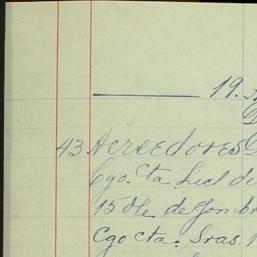 19.
43 Acreedores
Cgo. Cta. Sucl de
15 de
Cgo Cta. Sras.